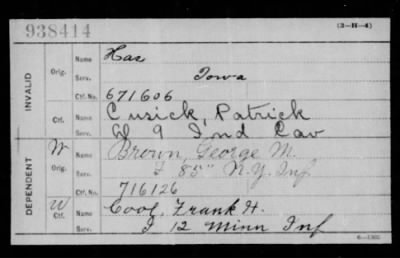 938414
(3-H-4)
INVALID
Orig. Name Has
Serv. Iowa
Ctf. No. 671606
Ctf. Name Cusick, Patrick
Serv. 9 Ind Cav
DEPENDENT
W Orig. Name Brown, George M.
Serv. F 85" N.Y. Inf
Ctf. No. 716126
W Ctf. Name Cool, Frank H.
Serv. I 12 Minn Inf